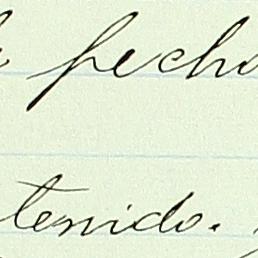 fecha
tenido.